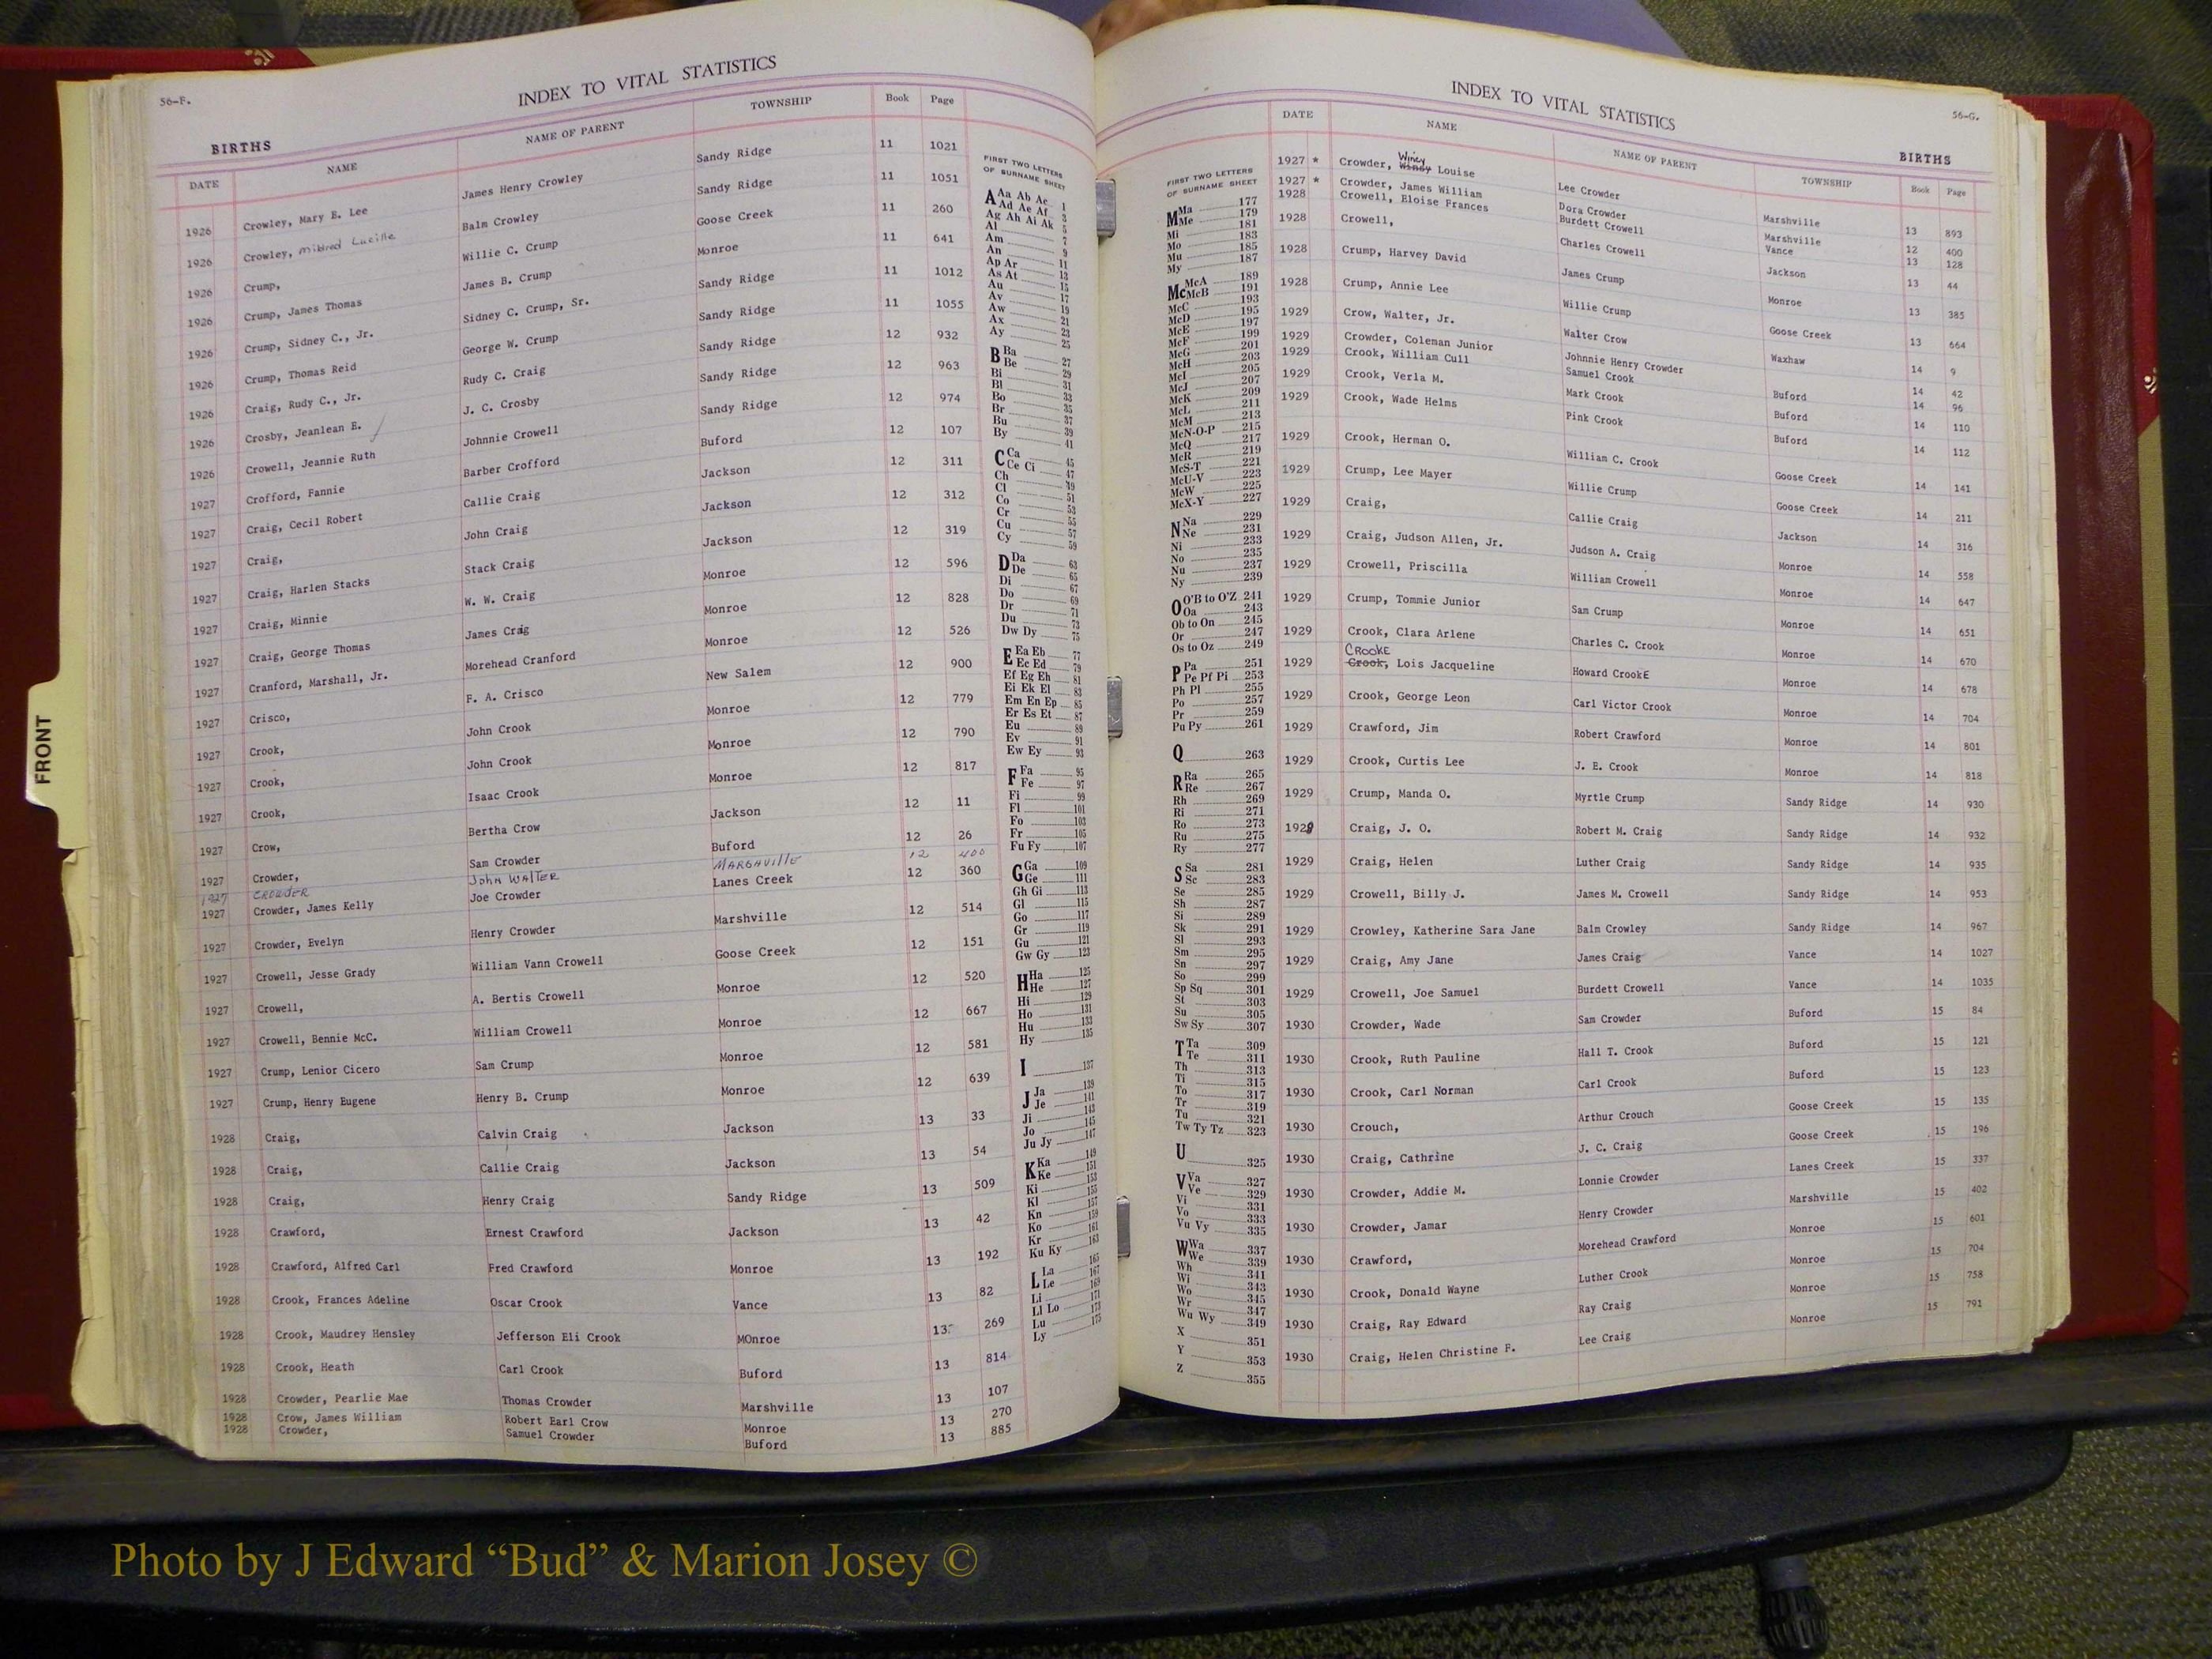 56-F.
INDEX TO VITAL STATISTICS
BIRTHS
DATE NAME NAME OF PARENT TOWNSHIP Book Page
1926 Crowley, Mary E. Lee James Henry Crowley Sandy Ridge 11 1021
1926 Crowley, Mildred Lucille Balm Crowley Sandy Ridge 11 1051
1926 Crump, Willie C. Crump Goose Creek 11 260
1926 Crump, James Thomas James B. Crump Monroe 11 641
1926 Crump, Sidney C., Jr. Sidney C. Crump, Sr. Sandy Ridge 11 1012
1926 Crump, Thomas Reid George W. Crump Sandy Ridge 11 1055
1926 Craig, Rudy C., Jr. Rudy C. Craig Sandy Ridge 12 932
1926 Crosby, Jeanlean E. J. C. Crosby Sandy Ridge 12 963
1926 Crowell, Jeannie Ruth Johnnie Crowell Sandy Ridge 12 974
1927 Crofford, Fannie Barber Crofford Buford 12 107
1927 Craig, Cecil Robert Callie Craig Jackson 12 311
1927 Craig, John Craig Jackson 12 312
1927 Craig, Harlen Stacks Stack Craig Jackson 12 319
1927 Craig, Minnie W. W. Craig Monroe 12 596
1927 Craig, George Thomas James Craig Monroe 12 828
1927 Cranford, Marshall, Jr. Morehead Cranford Monroe 12 526
1927 Crisco, F. A. Crisco New Salem 12 900
1927 Crook, John Crook Monroe 12 779
1927 Crook, John Crook Monroe 12 790
1927 Crook, Isaac Crook Monroe 12 817
1927 Crow, Bertha Crow Jackson 12 11
1927 Crowder, Sam Crowder Buford 12 26
1927 CROWDER John WALTER MARSHVIllE 12 400
1927 Crowder, James Kelly Joe Crowder Lanes Creek 12 360
1927 Crowder, Evelyn Henry Crowder Marshville 12 514
1927 Crowell, Jesse Grady William Vann Crowell Goose Creek 12 151
1927 Crowell, A. Bertis Crowell Monroe 12 520
1927 Crowell, Bennie McC. William Crowell Monroe 12 667
1927 Crump, Lenior Cicero Sam Crump Monroe 12 581
1927 Crump, Henry Eugene Henry B. Crump Monroe 12 639
1928 Craig, Calvin Craig Jackson 13 33
1928 Craig, Callie Craig Jackson 13 54
1928 Craig, Henry Craig Sandy Ridge 13 509
1928 Crawford, Ernest Crawford Jackson 13 42
1928 Crawford, Alfred Carl Fred Crawford Monroe 13 192
1928 Crook, Frances Adeline Oscar Crook Vance 13 82
1928 Crook, Maudrey Hensley Jefferson Eli Crook MOnroe 13 269
1928 Crook, Heath Carl Crook Buford 13 814
1928 Crowder, Pearlie Mae Thomas Crowder Marshville 13 107
1928 Crow, James William Robert Earl Crow Monroe 13 270
1928 Crowder, Samuel Crowder Buford 13 885
FIRST TWO LETTERS
OF SURNAME SHEET
A Aa Ab Ac 1
Ad Ae Af 3
Ag Ah Ai Ak 5
Al 7
Am 9
An 11
Ap Ar 13
As At 15
Au 17
Av 19
Aw 21
Ax 23
Ay 25
B Ba 27
Be 29
Bi 31
Bl 33
Bo 35
Br 37
Bu 39
By 41
C Ca 45
Ce Ci 47
Ch 49
Cl 51
Co 53
Cr 55
Cu 57
Cy 59
D Da 63
De 65
Di 67
Do 69
Dr 71
Du 73
Dw Dy 75
E Ea Eb 77
Ec Ed 79
Ef Eg Eh 81
Ei Ek El 83
Em En Ep 85
Er Es Et 87
Eu 89
Ev 91
Ew Ey 93
F Fa 95
Fe 97
Fi 99
Fl 101
Fo 103
Fr 105
Fu Fy 107
G Ga 109
Ge 111
Gh Gi 113
Gl 115
Go 117
Gr 119
Gu 121
Gw Gy 123
H Ha 125
He 127
Hi 129
Ho 131
Hu 133
Hy 135
I 137
J Ja 139
Je 141
Ji 143
Jo 145
Ju Jy 147
K Ka 149
Ke 151
Ki 153
Kl 155
Kn 157
Ko 159
Kr 161
Ku Ky 163
L La 165
Le 167
Li 169
Ll Lo 171
Lu 173
Ly 175
FRONT
INDEX TO VITAL STATISTICS
56-G.
BIRTHS
FIRST TWO LETTERS
OF SURNAME SHEET
M Ma 177
Me 179
Mi 181
Mo 183
Mu 185
My 187
Mc McA 189
McB 191
McC 193
McD 195
McE 197
McF 199
McG 201
McH 203
McI 205
McJ 207
McK 209
McL 211
McM 213
McN-O-P 215
McQ 217
McR 219
McS-T 221
McU-V 223
McW 225
McX-Y 227
N Na 229
Ne 231
Ni 233
No 235
Nu 237
Ny 239
O O'B to O'Z 241
Oa 243
Ob to On 245
Or 247
Os to Oz 249
P Pa 251
Pe Pf Pi 253
Ph Pl 255
Po 257
Pr 259
Pu Py 261
Q 263
R Ra 265
Re 267
Rh 269
Ri 271
Ro 273
Ru 275
Ry 277
S Sa 281
Sc 283
Se 285
Sh 287
Si 289
Sk 291
Sl 293
Sm 295
Sn 297
So 299
Sp Sq 301
St 303
Su 305
Sw Sy 307
T Ta 309
Te 311
Th 313
Ti 315
To 317
Tr 319
Tu 321
Tw Ty Tz 323
U 325
V Va 327
Ve 329
Vi 331
Vo 333
Vu Vy 335
W Wa 337
We 339
Wh 341
Wi 343
Wo 345
Wr 347
Wu Wy 349
X 351
Y 353
Z 355
DATE NAME NAME OF PARENT TOWNSHIP Book Page
Winey
1927 * Crowder, Windy Louise Lee Crowder Marshville 13 893
1927 * Crowder, James William Dora Crowder Marshville 12 400
1928 Crowell, Eloise Frances Burdett Crowell Vance 13 128
1928 Crowell, Charles Crowell Jackson 13 44
1928 Crump, Harvey David James Crump Monroe 13 385
1928 Crump, Annie Lee Willie Crump Goose Creek 13 664
1929 Crow, Walter, Jr. Walter Crow Waxhaw 14 9
1929 Crowder, Coleman Junior Johnnie Henry Crowder Buford 14 42
1929 Crook, William Cull Samuel Crook 14 96
1929 Crook, Verla M. Mark Crook Buford 14 110
1929 Crook, Wade Helms Pink Crook Buford 14 112
1929 Crook, Herman O. William C. Crook Goose Creek 14 141
1929 Crump, Lee Mayer Willie Crump Goose Creek 14 211
1929 Craig, Callie Craig Jackson 14 316
1929 Craig, Judson Allen, Jr. Judson A. Craig Monroe 14 558
1929 Crowell, Priscilla William Crowell Monroe 14 647
1929 Crump, Tommie Junior Sam Crump Monroe 14 651
1929 Crook, Clara Arlene Charles C. Crook Monroe 14 670
CROOKE
1929 Crook, Lois Jacqueline Howard CrookE Monroe 14 678
1929 Crook, George Leon Carl Victor Crook Monroe 14 704
1929 Crawford, Jim Robert Crawford Monroe 14 801
1929 Crook, Curtis Lee J. E. Crook Monroe 14 818
1929 Crump, Manda O. Myrtle Crump Sandy Ridge 14 930
1929 Craig, J. O. Robert M. Craig Sandy Ridge 14 932
1929 Craig, Helen Luther Craig Sandy Ridge 14 935
1929 Crowell, Billy J. James M. Crowell Sandy Ridge 14 953
1929 Crowley, Katherine Sara Jane Balm Crowley Sandy Ridge 14 967
1929 Craig, Amy Jane James Craig Vance 14 1027
1929 Crowell, Joe Samuel Burdett Crowell Vance 14 1035
1930 Crowder, Wade Sam Crowder Buford 15 84
1930 Crook, Ruth Pauline Hall T. Crook Buford 15 121
1930 Crook, Carl Norman Carl Crook Buford 15 123
1930 Crouch, Arthur Crouch Goose Creek 15 135
1930 Craig, Cathrine J. C. Craig Goose Creek 15 196
1930 Crowder, Addie M. Lonnie Crowder Lanes Creek 15 337
1930 Crowder, Jamar Henry Crowder Marshville 15 402
1930 Crawford, Morehead Crawford Monroe 15 601
1930 Crook, Donald Wayne Luther Crook Monroe 15 704
1930 Craig, Ray Edward Ray Craig Monroe 15 758
1930 Craig, Helen Christine F. Lee Craig Monroe 15 791
Photo by J Edward “Bud” & Marion Josey ©